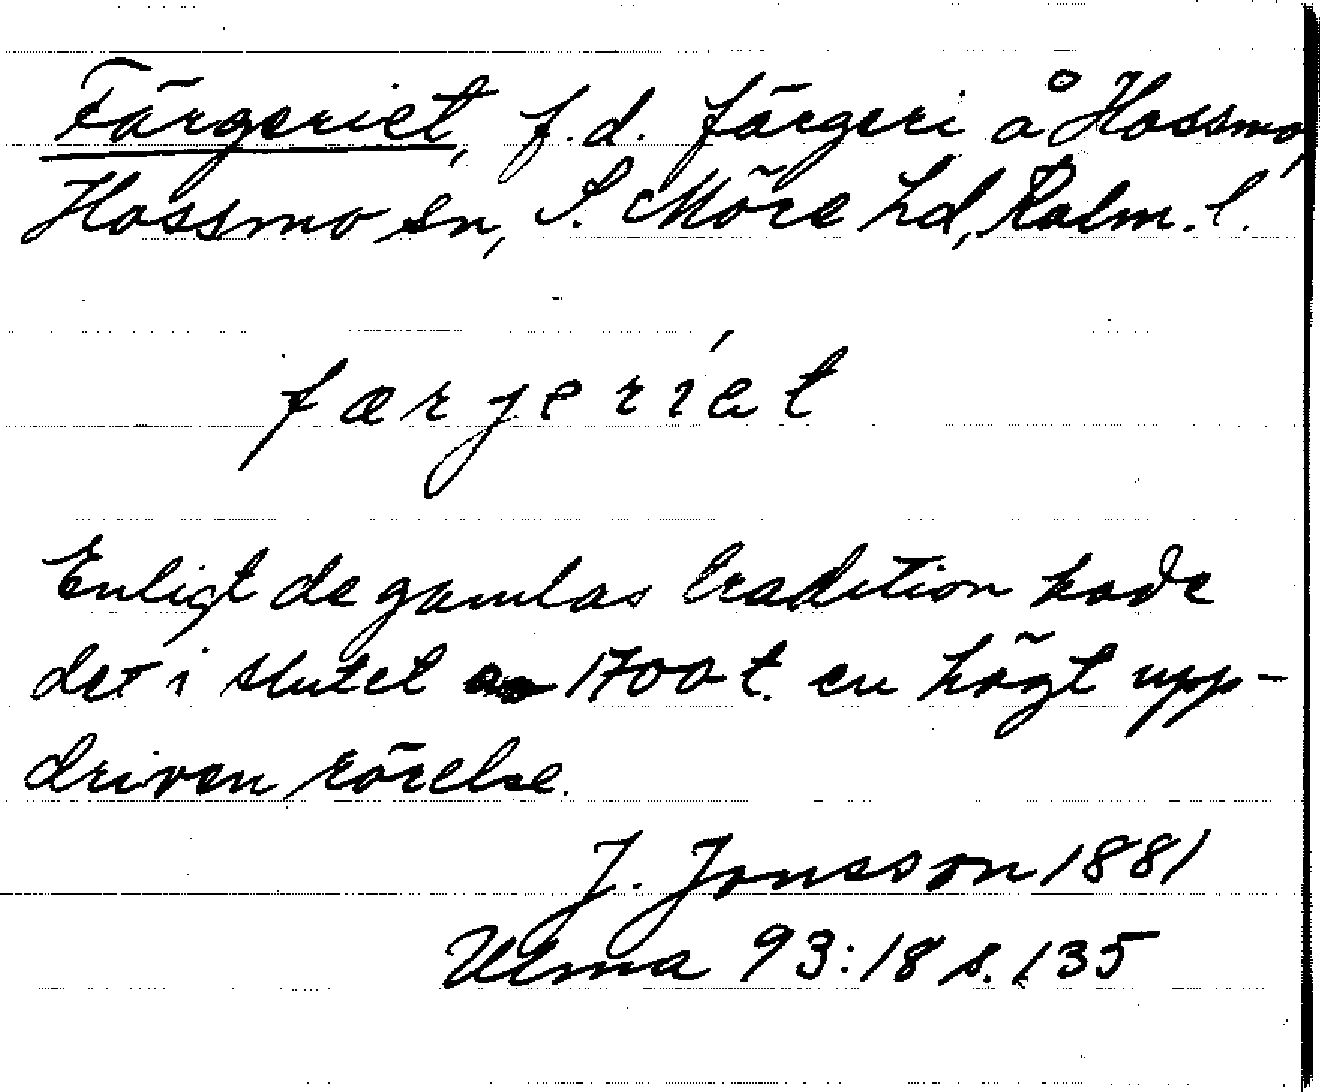 Färgeriet, f.d. färgeri å Hossmo,
Hossmo sn, S. Möre hd, Kalm. l.
færjeriet
Enligt de gamlas tradition hade
det i slutet 1700 t. en högt upp-
driven rörelse.
J. Jonsson 1881
Ulma 93:18 s. 135